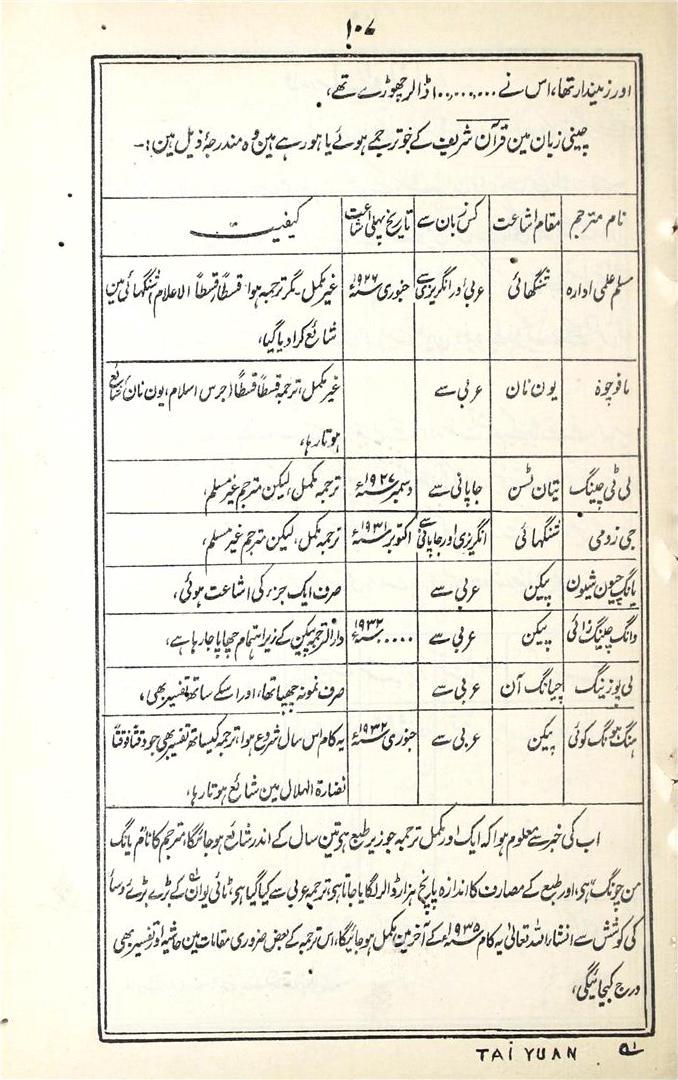 ۱۰۷
اور زمیندار تھا، اس نے ۱۰۰۰۰۰۰ ڈالر چھوڑے تھے،
چینی زبان مین قرآن شریف کے جو ترجمے ہوئے یا ہو رہے ہین وہ مندرجۂ ذیل ہین:۔
نام مترجم | مقام اشاعت | کس زبان سے | تاریخ پہلی اشاعت | کیفیت
مسلم علمی ادارہ | شنگھائی | عربی اور انگریزی سے | جنوری ۱۹۲۶ء | غیر مکمل۔ مگر ترجمہ ہوا۔ قسطاً قسطاً الاعلام شنگھائی مین
شائع کرا دیا گیا،
مافوچوہ | یون نان | عربی سے | غیر مکمل، ترجمہ قسطاً قسطاً (جرس اسلام، یون نان) شائع
ہوتا رہا،
لی ٹی چینگ | تیان ٹسن | جاپانی سے | دسمبر ۱۹۲۷ء | ترجمہ مکمل، لیکن مترجم غیر مسلم،
جی زومی | شنگھائی | انگریزی اور جاپانی سے | اکتوبر ۱۹۳۱ء | ترجمہ مکمل، لیکن مترجم غیر مسلم،
یانگ چیون شیون | پیکن | عربی سے | صرف ایک جزء کی اشاعت ہوئی،
وانگ چینگ زائی | پیکن | عربی سے | ۰۰۰۰ ۱۹۳۲ء | دارالترجمہ پیکن کے زیر اہتمام چھاپا جا رہا ہے،
لی یوزینگ | چیانگ آن | عربی سے | صرف نمونہ چھپا تھا، اور اسکے ساتھ تفسیر بھی،
ہنگ ہونگ کوئی | پیکن | عربی سے | جنوری ۱۹۳۲ء | یہ کام اس سال شروع ہوا، ترجمہ کیساتھ تفسیر بھی جو وقتاً فوقتاً
نضارۃ الہلال مین شائع ہوتا رہا،
اب کی خبر سے معلوم ہوا کہ ایک اور مکمل ترجمہ جو زیر طبع ہی تین سال کے اندر شائع ہو جائیگا، مترجم کا نام یانگ
من چونگ ہی، اور طبع کے مصارف کا اندازہ پانچ ہزار ڈالر لگایا جاتا ہی، ترجمہ عربی سے کیا گیا ہی، ٹائی یوان کے بڑے بڑے
کی کوشش سے انشاء اللہ تعالیٰ یہ کام ۱۹۳۵ء کے آخر مین مکمل ہو جائیگا، اس ترجمہ کے بعض ضروری مقامات مین حاشیہ اور تفسیر بھی
درج کیجائیگی،
TAI YUAN